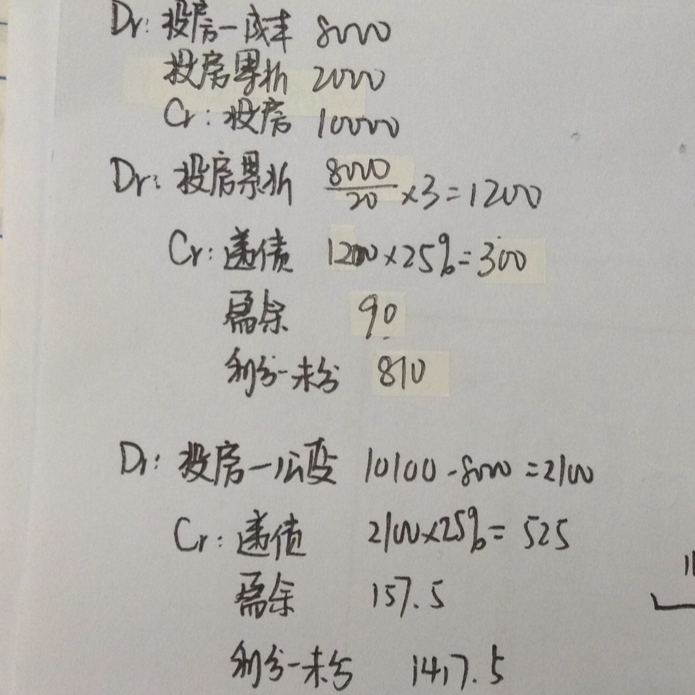 Dr: 投房-成本 8000
投房累折 2000
Cr: 投房 10000
Dr: 投房累折 8000/20 ×3=1200
Cr: 递债 1200×25%=300
盈余 90
利分-未分 810
Dr: 投房-公变 10100-8000=2100
Cr: 递债 2100×25%= 525
盈余 157.5
利分-未分 1417.5